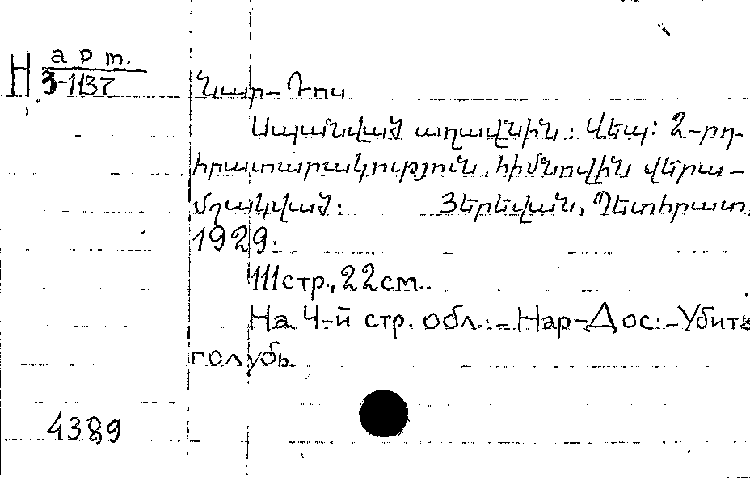 Н арт.
3-1137
Նար-Դոս
Սպանված աղավնին: Վեպ: 2-րդ
հրատարակություն, հիմնովին վերա-
մշակված: Յերեվան, Պետհրատ,
1929.
111стр., 22см.
На 4-й стр. обл.:-Нар-Дос:-Убить
голубь.
4389